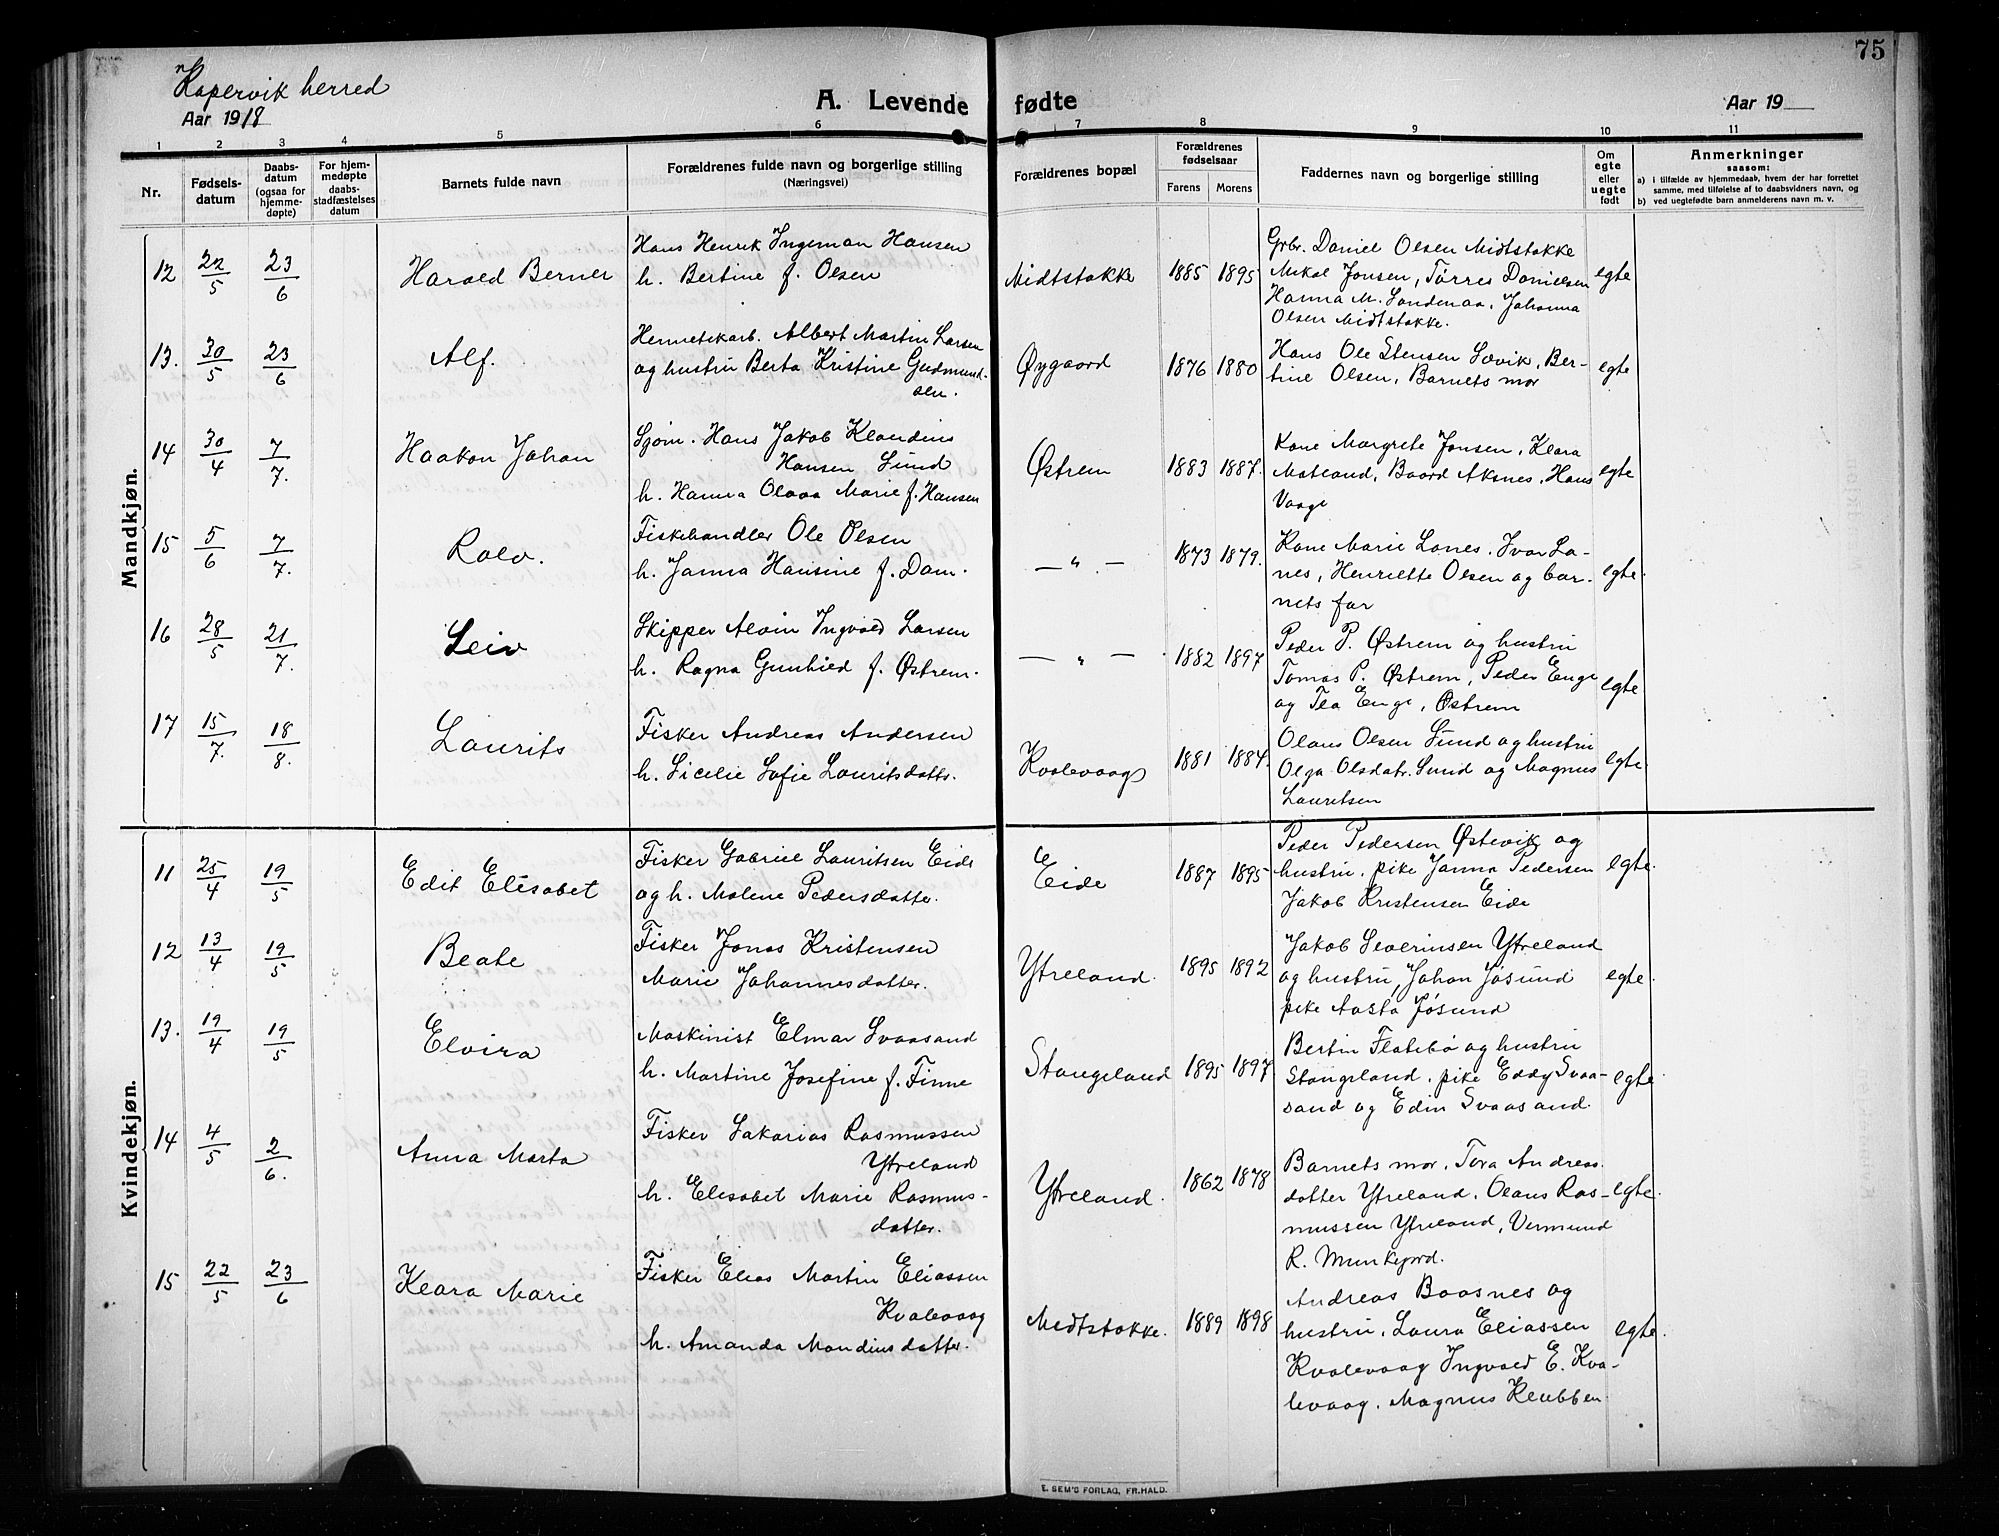 75
Kopervik herred
Aar 1918
A. Levende fødte
Aar 19
1 2 3 4 5 6 7 8 9 10 11
Nr.
Fødsels-
datum
Daabs-
datum
(ogsaa for
hjemme-
døpte)
For hjem-
medøpte
daabs-
stadfæstelses
datum
Barnets fulde navn
Forældrenes fulde navn og borgerlige stilling
(Næringsvei)
Forældrenes bopæl
Forældrenes
fødselsaar
Farens Morens
Faddernes navn og borgerlige stilling
Om
egte
eller
uegte
født
Anmerkninger
saasom:
a) i tilfælde av hjemmedaab, hvem der har forrettet
samme, med tilføielse af to daabsvidners navn, og
b) ved uegtefødte barn anmelderens navn m. v.
Mandkjøn.
12 22/5 23/6 Harald Berner
Hans Henrik Ingeman Hansen
h. Bertine f. Olsen
Midtstokke 1885 1895
Grbr. Daniel Olsen Midtstokke
Mikal Jonsen, Tørres Danielsen
Hanna M. Sandenaa, Johanna
Olsen Midtstokke.
egte
13. 30/5 23/6 Alf.
Hermetikarb. Albert Martin Larsen
og hustru Berta Kristine Gudmund-
sen.
Øygaard 1876 1880
Hans Ole Stensen Sævik, Ber-
tine Olsen, Barnets mor
egte
14 30/4 7/7. Haakon Johan
Sjøm. Hans Jakob Klaudius
Hansen Sund
h. Hanna Olava Marie f. Hansen
Østrem 1883 1887.
Kone Margrete Jonsen, Klara
Matland, Baard Aksnes, Hans
Vaage
egte
15 5/6 7/7. Rolv.
Fiskehandler Ole Olsen
h. Janna Hansine f. Dam.
— " — 1873 1879.
Kone Marie Lones. Ivar Lo-
nes, Henriette Olsen og bar-
nets far
egte.
16 28/5 21/7. Leiv
Skipper Alvin Ingvald Larsen
h. Ragna Gunhild f. Østrem.
— " — 1882 1897
Peder P. Østrem og hustru
Tomas P. Østrem, Peder Enge
og Tea Enge, Østrem
egte
17 15/7. 18/8. Laurits
Fisker Andreas Andersen
h. Sicelie Sofie Lauritsdatter.
Kvalevaag 1881 1884.
Olaus Olsen Sund og hustru
Olga Olsdatr. Sund og Magnus
Lauritsen
egte.
Kvindekjøn.
11 25/4 19/5 Edit Elisabet
Fisker Gabriel Lauritsen Eide
og h. Malene Pedersdatter.
Eide 1887 1895
Peder Pedersen Østevik og
hustru, pike Janna Pedersen
Jakob Kristensen Eide
egte.
12 13/4 19/5 Beate
Fisker Jonas Kristensen
Marie Johannesdatter.
Ytreland. 1895 1892
Jakob Severinsen Ytreland
og hustru, Johan Jøsund
pike Aasta Jøsund
egte.
13. 19/4 19/5 Elvira
Maskinist Elmar Svaasand
h. Martine Josefine f. Finne
Stangeland 1895 1897
Bertin Flatebø og hustru
Stangeland, pike Eddy Svaa-
sand og Edin Svaasand.
egte
14 4/5 2/6. Anna Marta
Fisker Sakarias Rasmussen
Ytreland
h. Elisabet Marie Rasmus-
datter.
Ytreland. 1862 1878
Barnets mor. Tora Andreas
datter Ytreland. Olaus Ras-
mussen Ytreland, Vermund
R. Munkejord.
egte.
15 22/5 23/6 Klara Marie
Fisker Elias Martin Eliassen
Kvalevaag
h. Amanda Mandiusdatter.
Midtstokke. 1889 1898
Andreas Baasnes og
hustru, Laura Eliassen
Kvalevaag Ingvald E. Kva-
levaag. Magnus Klubben
egte.
E. SEM'S FORLAG, FR.HALD.